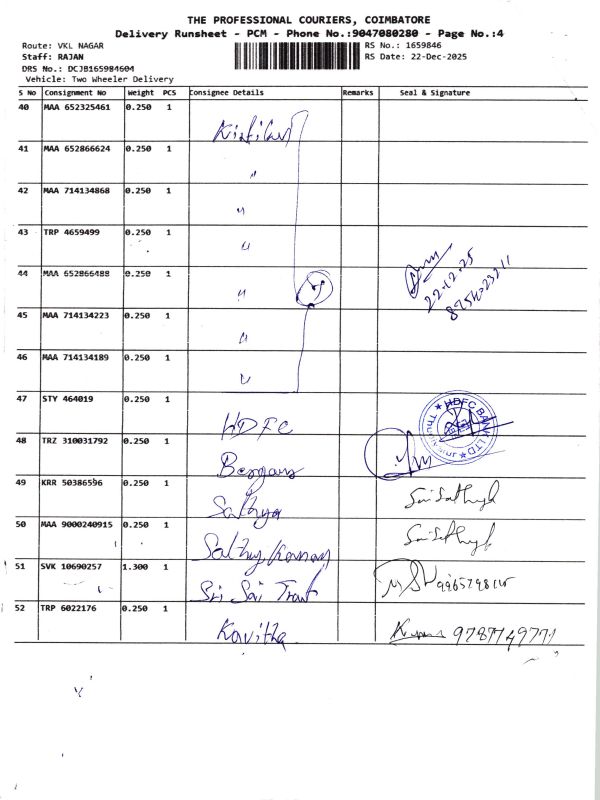 THE PROFESSIONAL COURIERS, COIMBATORE
Delivery Runsheet - PCM - Phone No.:9047080280 - Page No.:4
Route: VKL NAGAR RS No.: 1659846
Staff: RAJAN RS Date: 22-Dec-2025
DRS No.: DCJB165984604
Vehicle: Two Wheeler Delivery
S No Consignment No Weight PCS Consignee Details Remarks Seal & Signature
40 MAA 652325461 0.250 1
41 MAA 652866624 0.250 1 "
42 MAA 714134868 0.250 1 "
43 TRP 4659499 0.250 1 "
44 MAA 652866488 0.250 1 " 22.12.25
45 MAA 714134223 0.250 1 "
46 MAA 714134189 0.250 1 "
47 STY 464019 0.250 1 HDFC HDFC BANK LTD
48 TRZ 310031792 0.250 1
49 KRR 50386596 0.250 1 Sathya
50 MAA 9000240915 0.250 1
51 SVK 10690257 1.300 1 Sri Sai
52 TRP 6022176 0.250 1 Kavitha